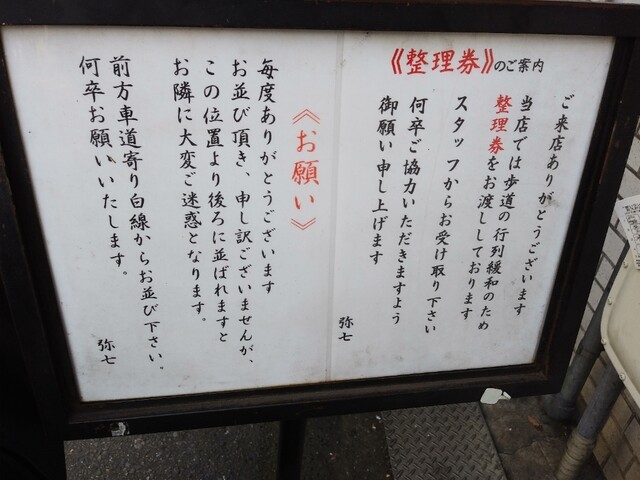 《整理券》のご案内
ご来店ありがとうございます
当店では歩道の行列緩和のため
整理券をお渡ししております
スタッフからお受け取り下さい
何卒ご協力いただきますよう
御願い申し上げます
弥七
《お願い》
毎度ありがとうございます
お並び頂き、申し訳ございませんが、
この位置より後ろに並ばれますと
お隣に大変ご迷惑となります。
前方車道寄り白線からお並び下さい。
何卒お願いいたします。
弥七